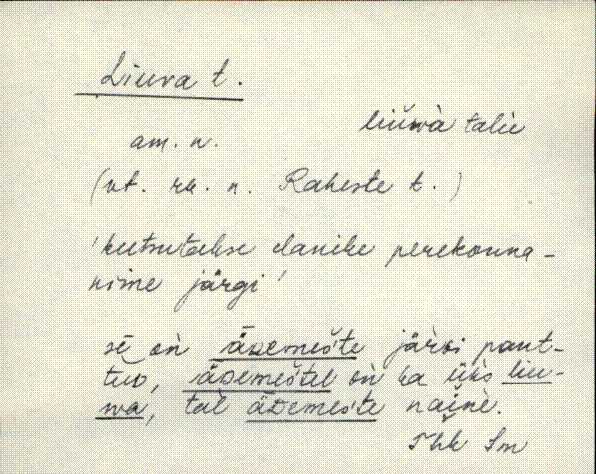 Liuva t.
liuwà talùe
am. n.
(vt. rk. n. Raheste t.)
'kutsutakse elanike perekonna-
nime järgi'
sē on̆ äᴅemešte järɢi pant-
tuᴅ, äᴅemeštel on̆ ka üks liu-
wa, tal äᴅemešte nainè.
Khk Sm